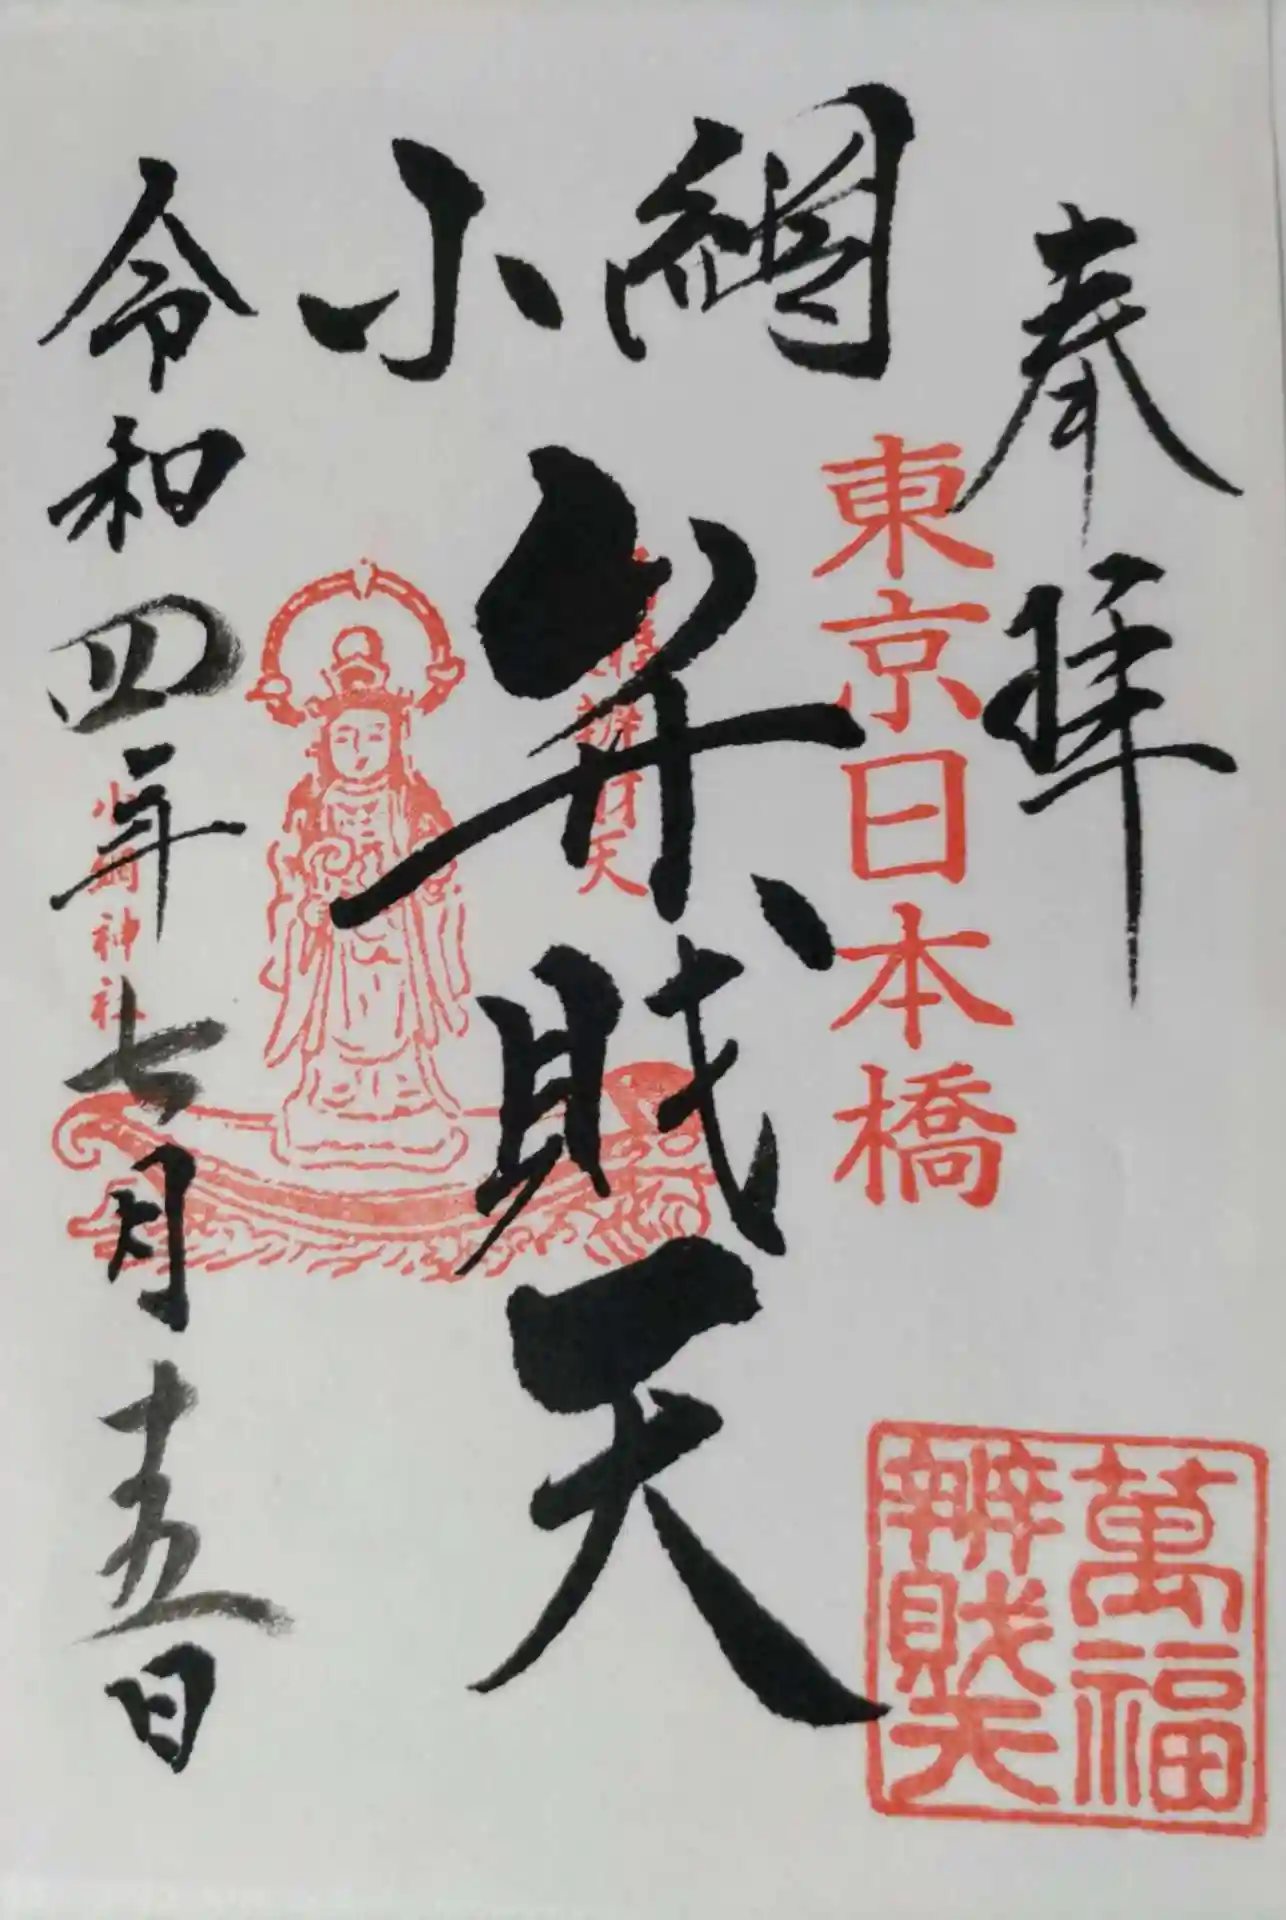 奉拝
東京日本橋
小網
弁財天
萬福
辨財天
令和四年七月十五日
小網神社